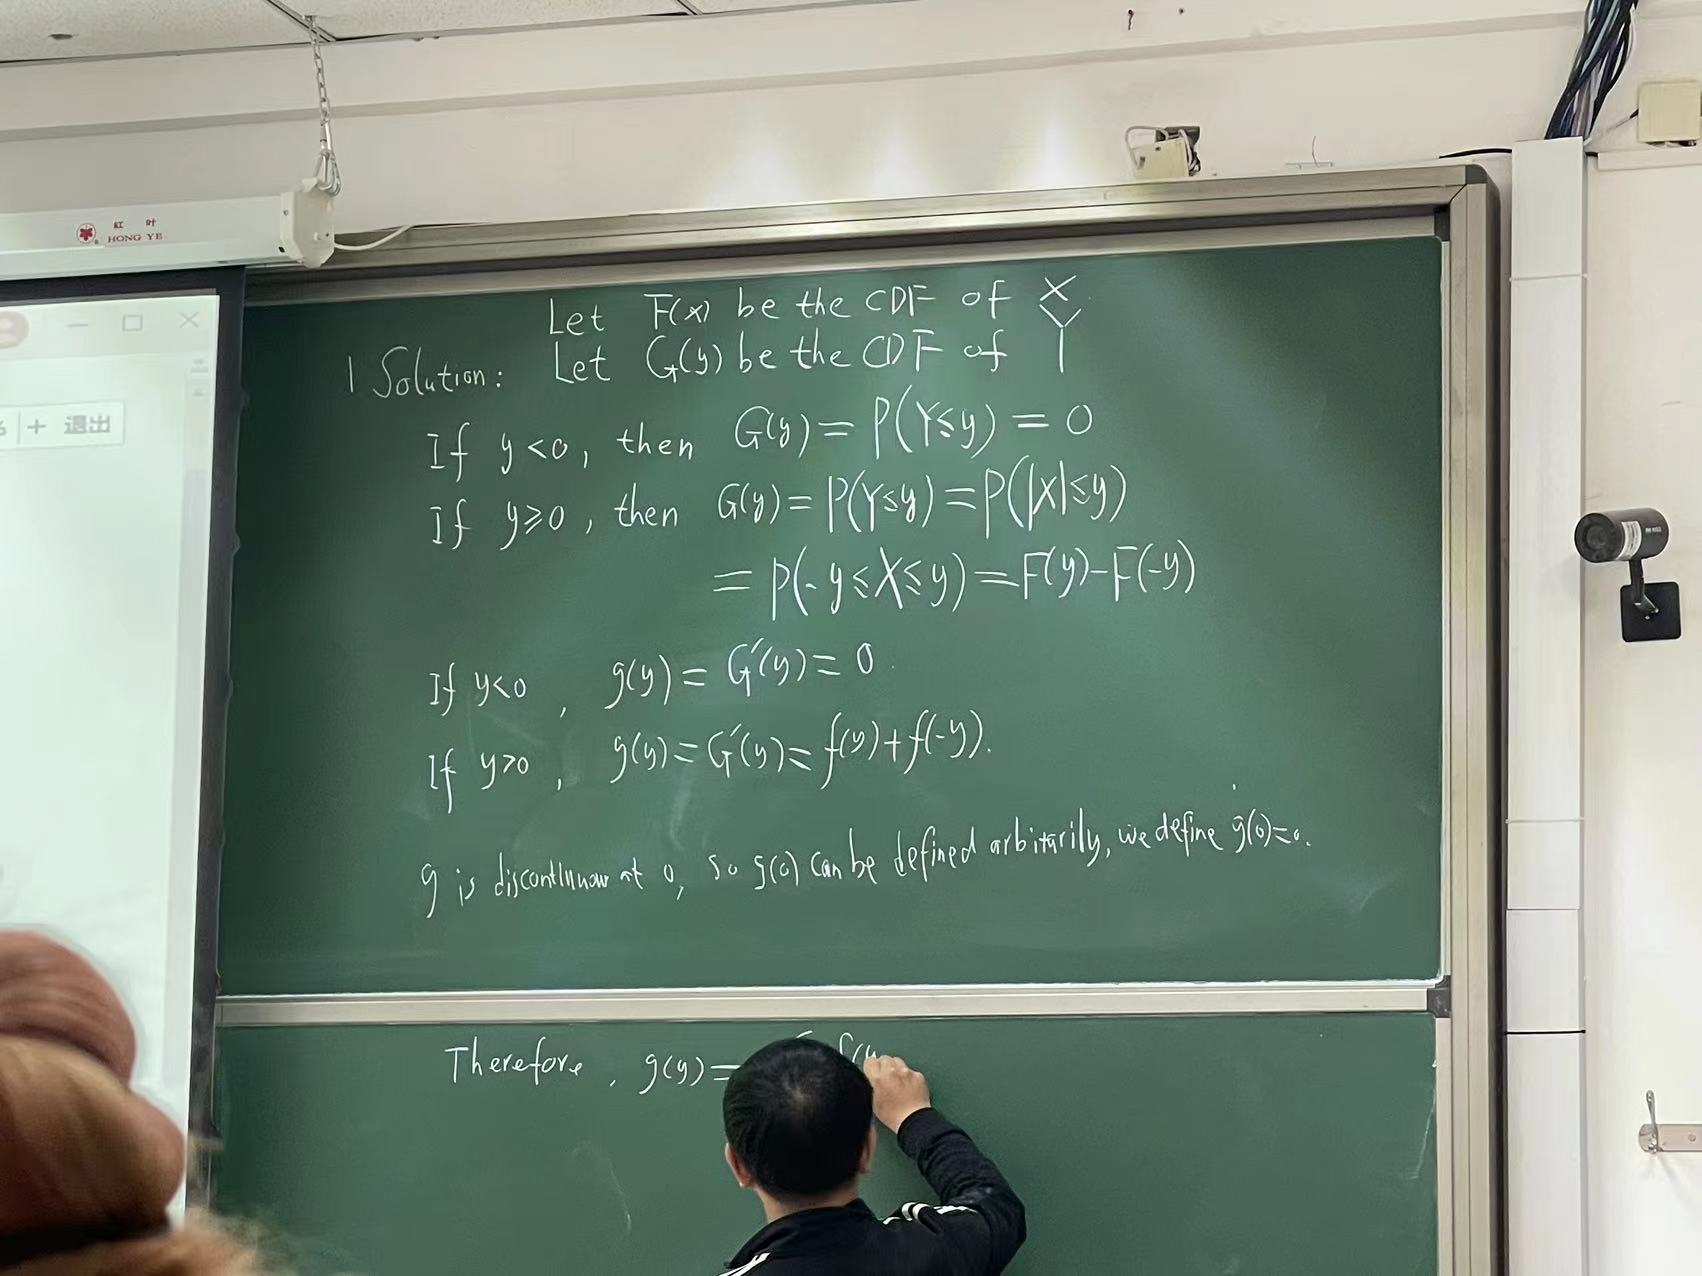 紅 叶
HONG YE
+ 退出
Let F(x) be the CDF of X
1 Solution: Let G(y) be the CDF of Y
If y<0, then G(y) = P(Y≤y) = 0
If y≥0, then G(y) = P(Y≤y) = P(|X|≤y)
= P(-y≤X≤y) = F(y)-F(-y)
If y<0, g(y) = G'(y) = 0.
If y>0, g(y) = G'(y) = f(y)+f(-y).
g is at 0, so g(0) can be defined arbitarily, we define g(0)=0.
Therefore, g(y) = f(y